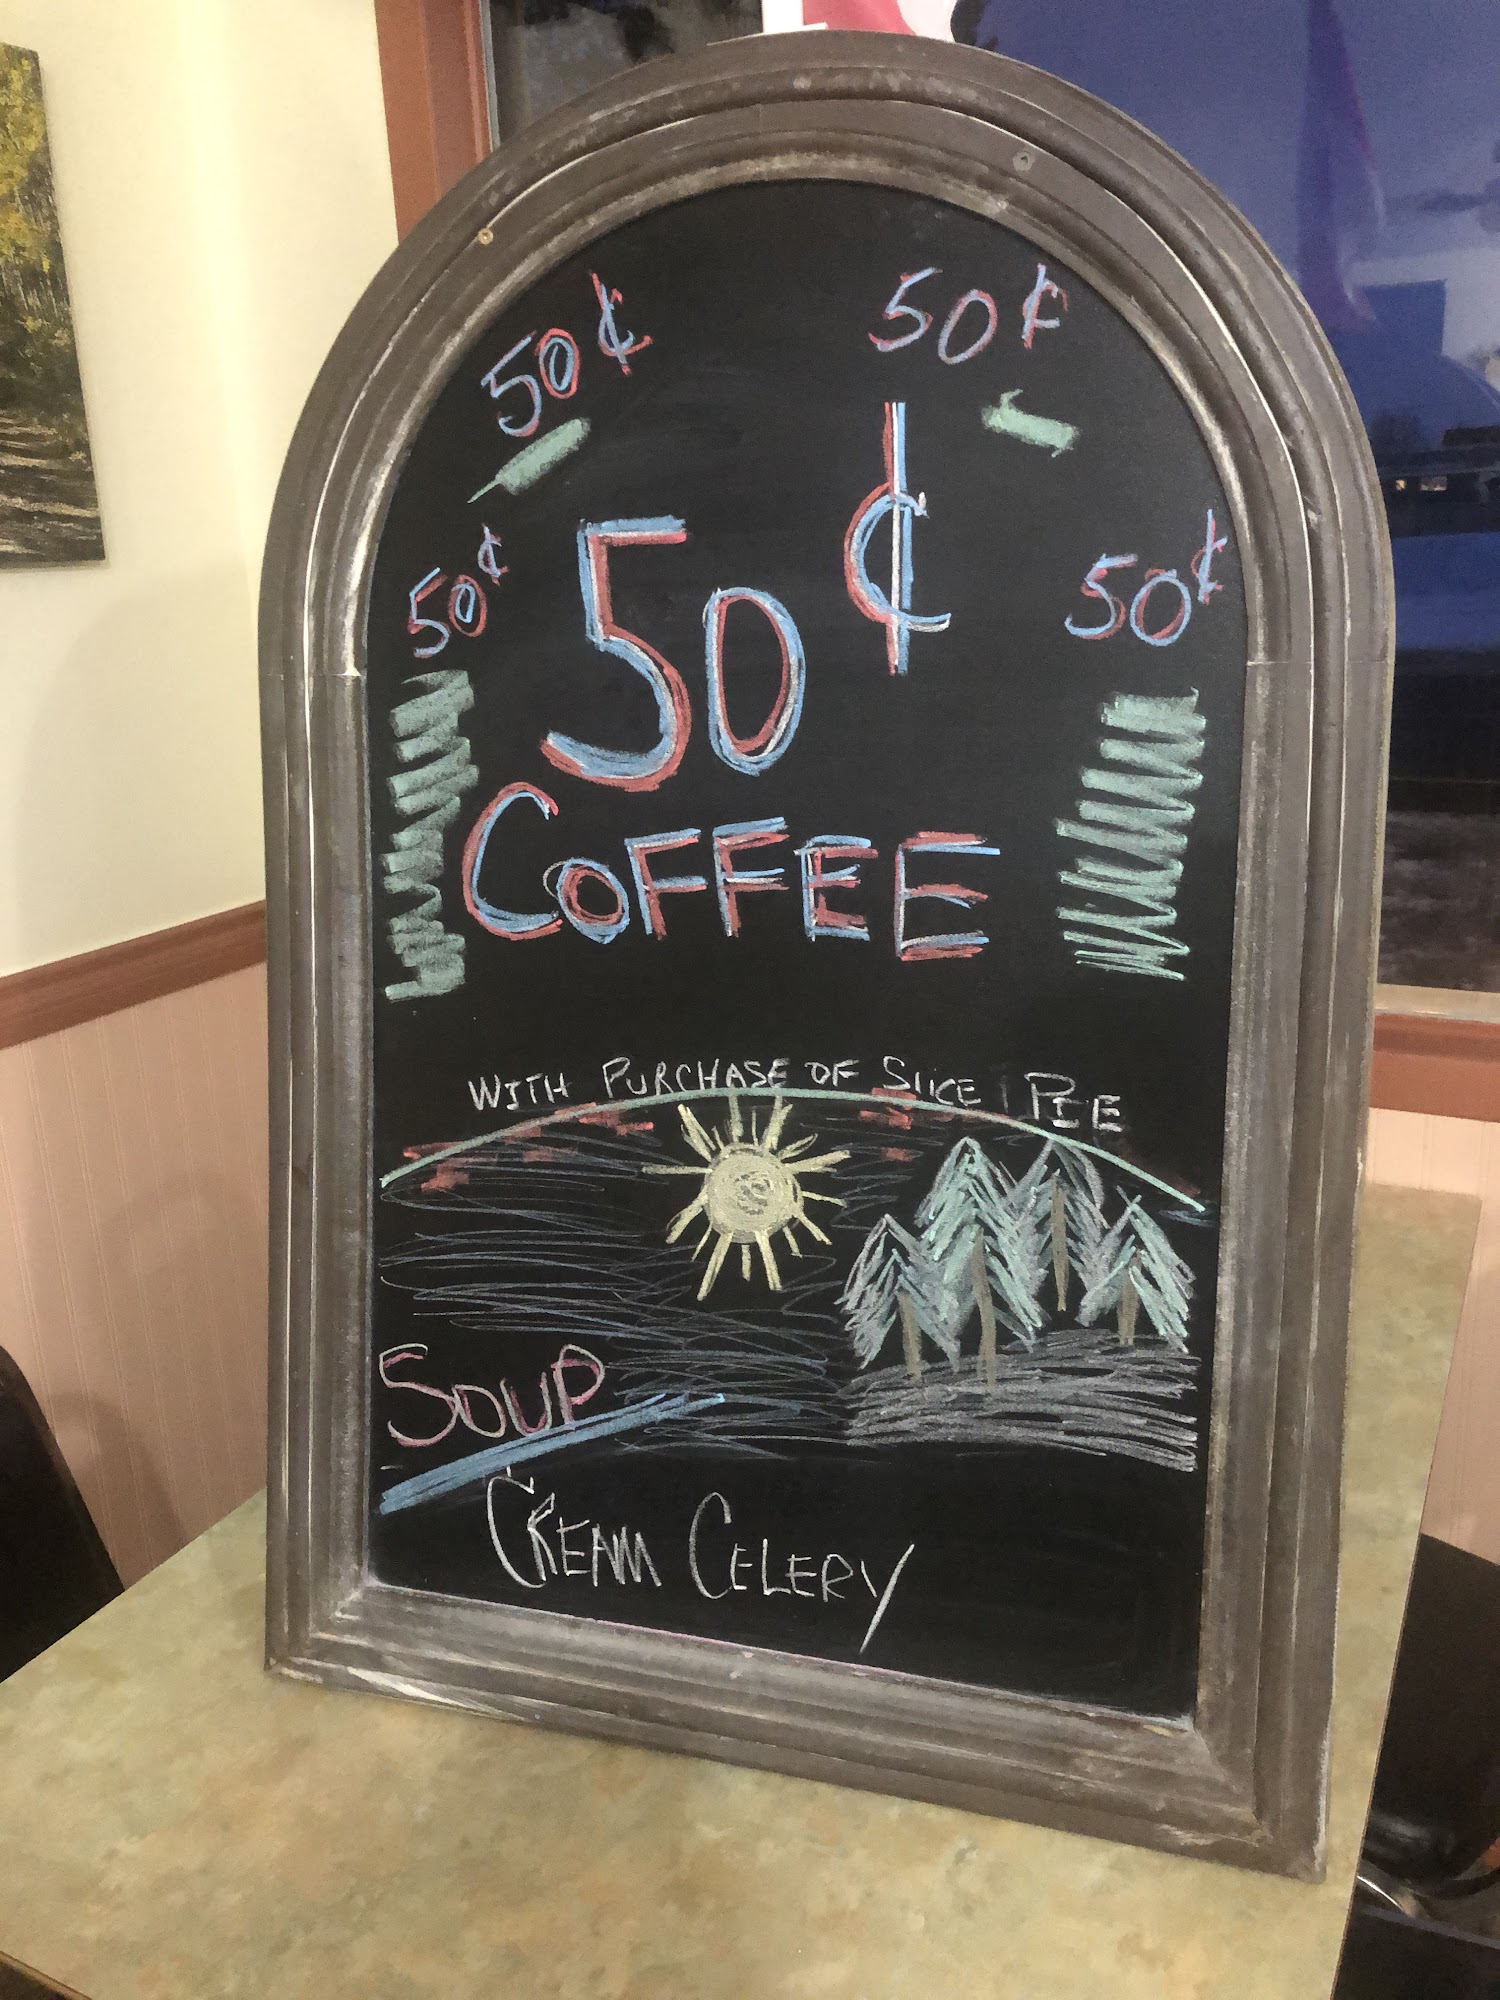 50¢ 50¢
50¢ 50¢ 50¢
COFFEE
WITH PURCHASE OF SLICE PIE
SOUP
CREAM CELERY